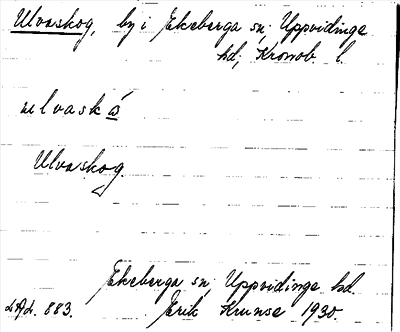 Ulvaskog, by i Ekeberga sn, Uppvidinge
hd, Kronob. l.
ulvaskå
Ulvaskog.
Ekeberga sn, Uppvidinge hd.
LAL. 883. Erik Krunse 1930.